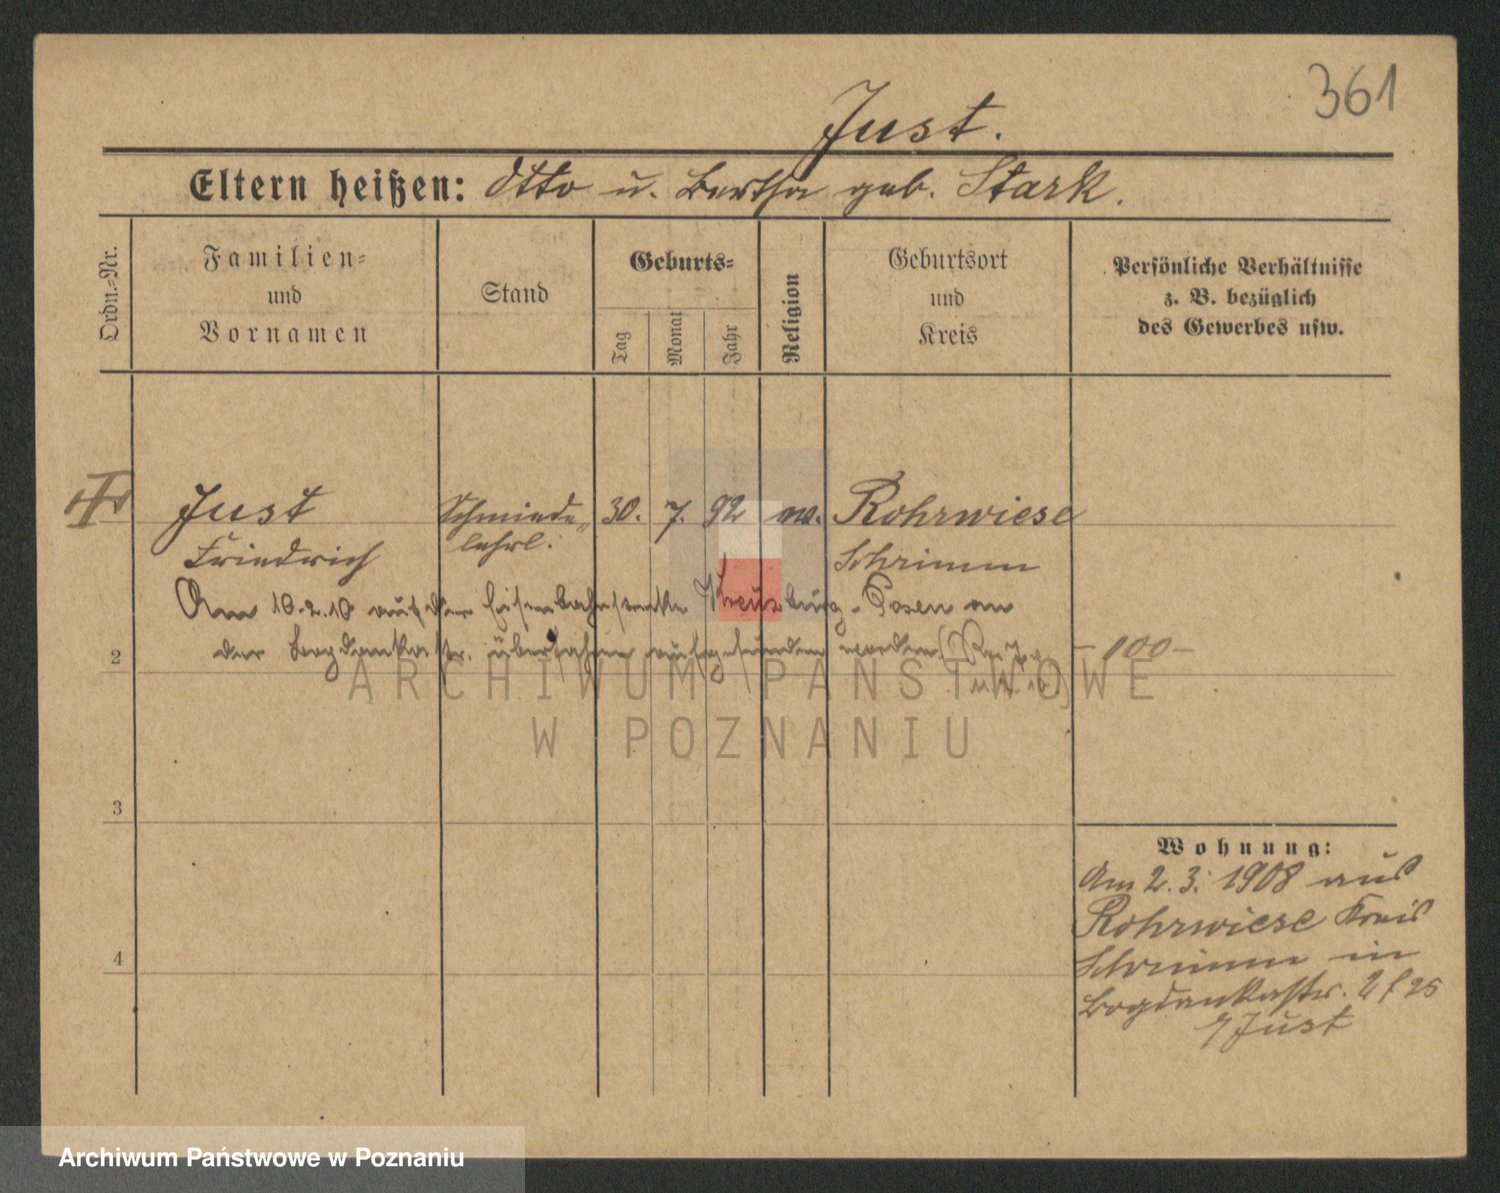 361
Just.
Eltern heißen: Otto u. Bertha geb. Stark.
Ordn.-Nr.
Familien-
und
Vornamen
Stand
Geburts-
Tag
Monat
Jahr
Religion
Geburtsort
und
Kreis
Persönliche Verhältnisse
z. B. bezüglich
des Gewerbes usw.
Just
Friedrich
Schmiede-
lehrl.
30. 7. 92
ev.
Rohrwiese
Schrimm
Am 10.2.10 auf der Eisenbahnstrecke Kreuzburg-Posen an
der Bogdankastr. überfahren aufgefunden worden
2
-100-
3
4
Wohnung:
Am 2.3. 1908 aus
Rohrwiese Kreis
Schrimm in
Bogdankastr. 2
Just
ARCHIWUM PAŃSTWOWE
W POZNANIU
Archiwum Państwowe w Poznaniu